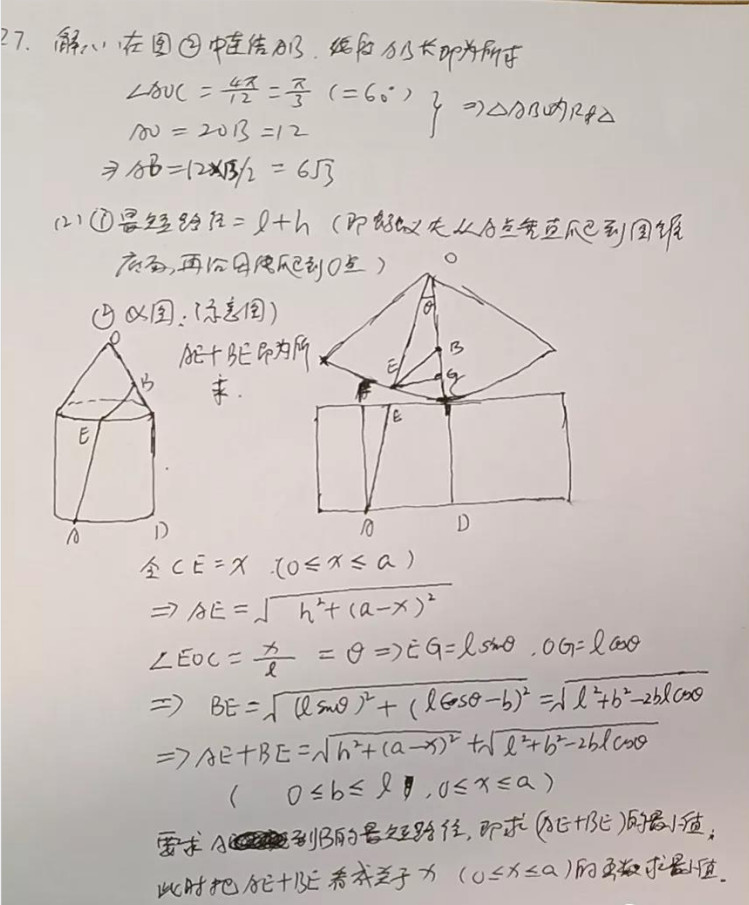 27. 解(1) 在图②中连结AB, 线段AB长即为所求
∠AOC = 4π/12 = π/3 (=60°)
AO = 20B = 12
} ⇒ △ABO为Rt△
⇒ AB = 12×√3/2 = 6√3
(2) ① 最短路径 = l + h (即蚂蚁先从A点竖直爬到圆锥
底面,再沿母线爬到O点)
② 如图:(示意图)
AE+BE即为所
求.
O
B
E
A
D
O
θ
B
E
G
C
E
A
D
令 CE = x (0 ≤ x ≤ a)
⇒ AE = √(h²+(a-x)²)
∠EOC = x/l = θ ⇒ EG = l sinθ, OG = l cosθ
⇒ BE = √((l sinθ)² + (l cosθ - b)²) = √(l²+b²-2bl cosθ)
⇒ AE+BE = √(h²+(a-x)²) + √(l²+b²-2bl cosθ)
( 0 ≤ b ≤ l , 0 ≤ x ≤ a )
要求A到B的最短路径,即求(AE+BE)的最小值;
此时把AE+BE看成关于x (0≤x≤a)的函数求最小值.